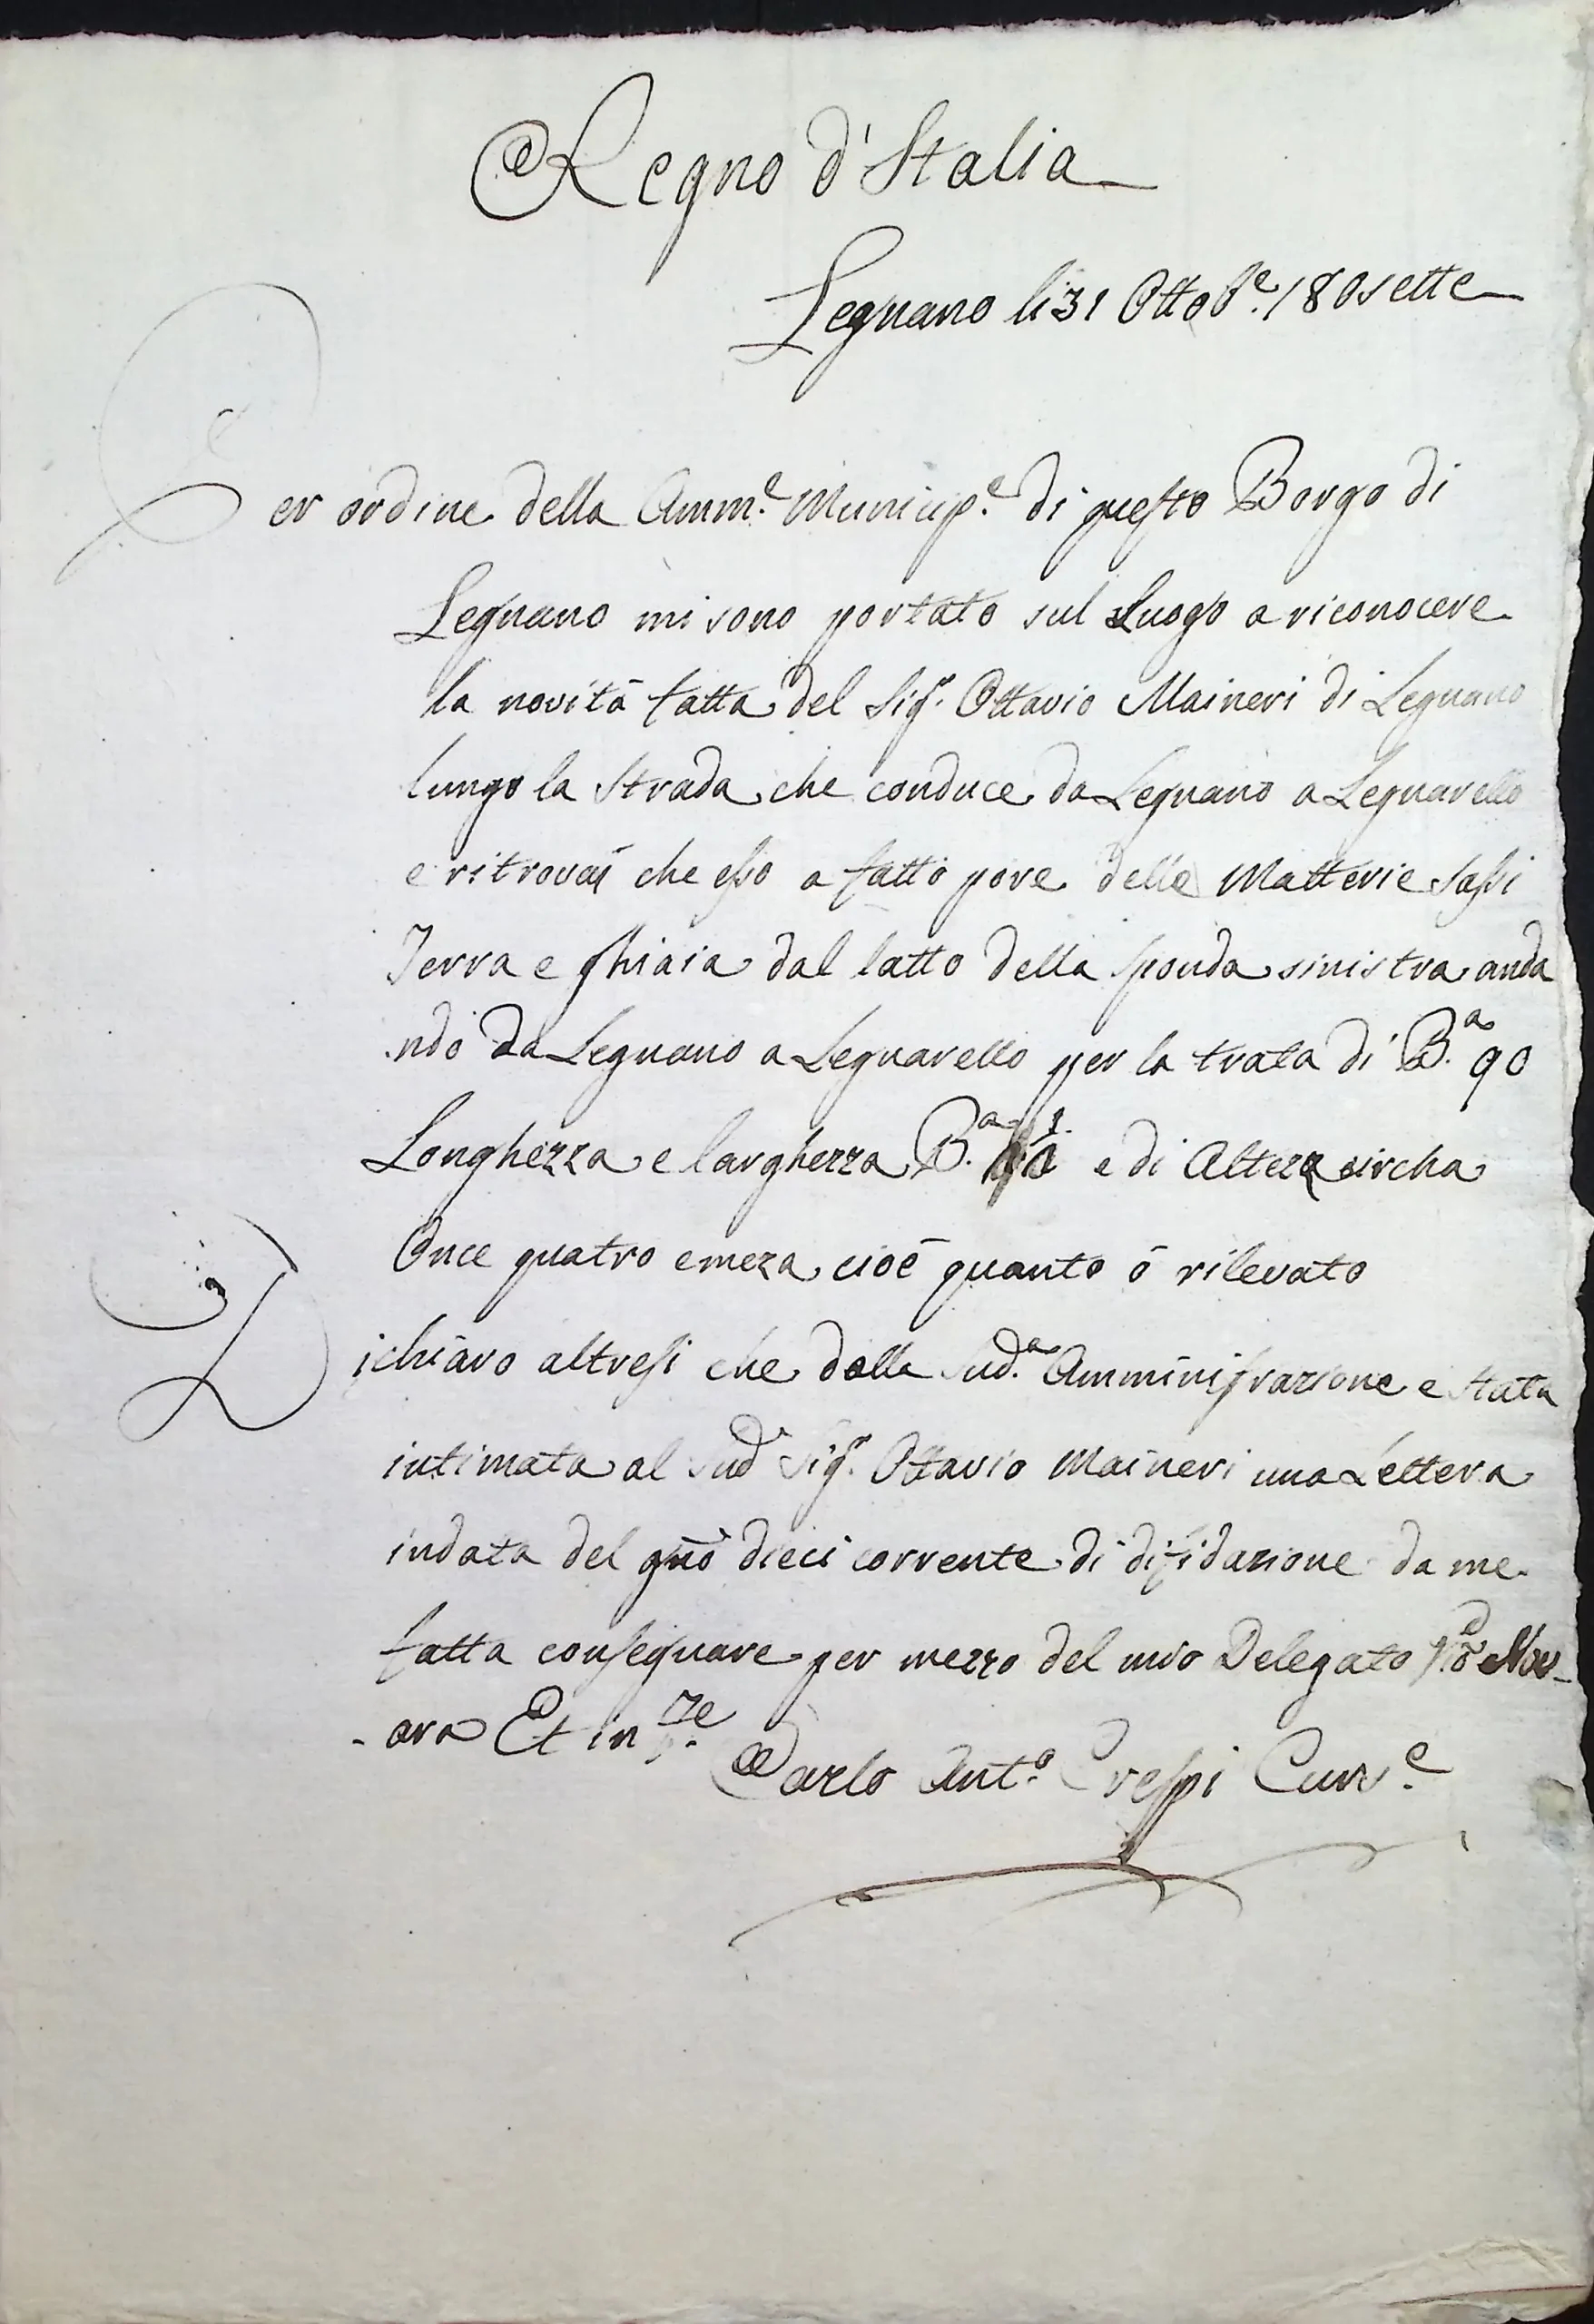 Regno d'Italia
Legnano li 31 Ottob.e 180sette
Per ordine della Amm.e Municip.e di questo Borgo di
Legnano mi sono portato sul Luogo a riconocere
la novità fatta del Sig.r Ottavio Maineri di Legnano
lungo la Strada che conduce da Legnano a Legnarello
e ritrovai che esso a fatto pore delle Matterie Sassi
Terra e ghiaia dal latto della sponda sinistra anda
ndo da Legnano a Legnarello per la trata di B.a 90
Longhezza e larghezza B.a 1 e di Alteza circha
Once quatro e meza cioè quanto ò rilevato
Dichiaro altresi che dalla Sud.a Amministrazione e stata
intimata al Sud.o Sig.r Ottavio Maineri una Lettera
in data del gno dieci corrente di difidazione da me
fatta consegnare per mezzo del mio Delegato Nov-
-ara Et in
Carlo Ant.o Crespi Curs.e